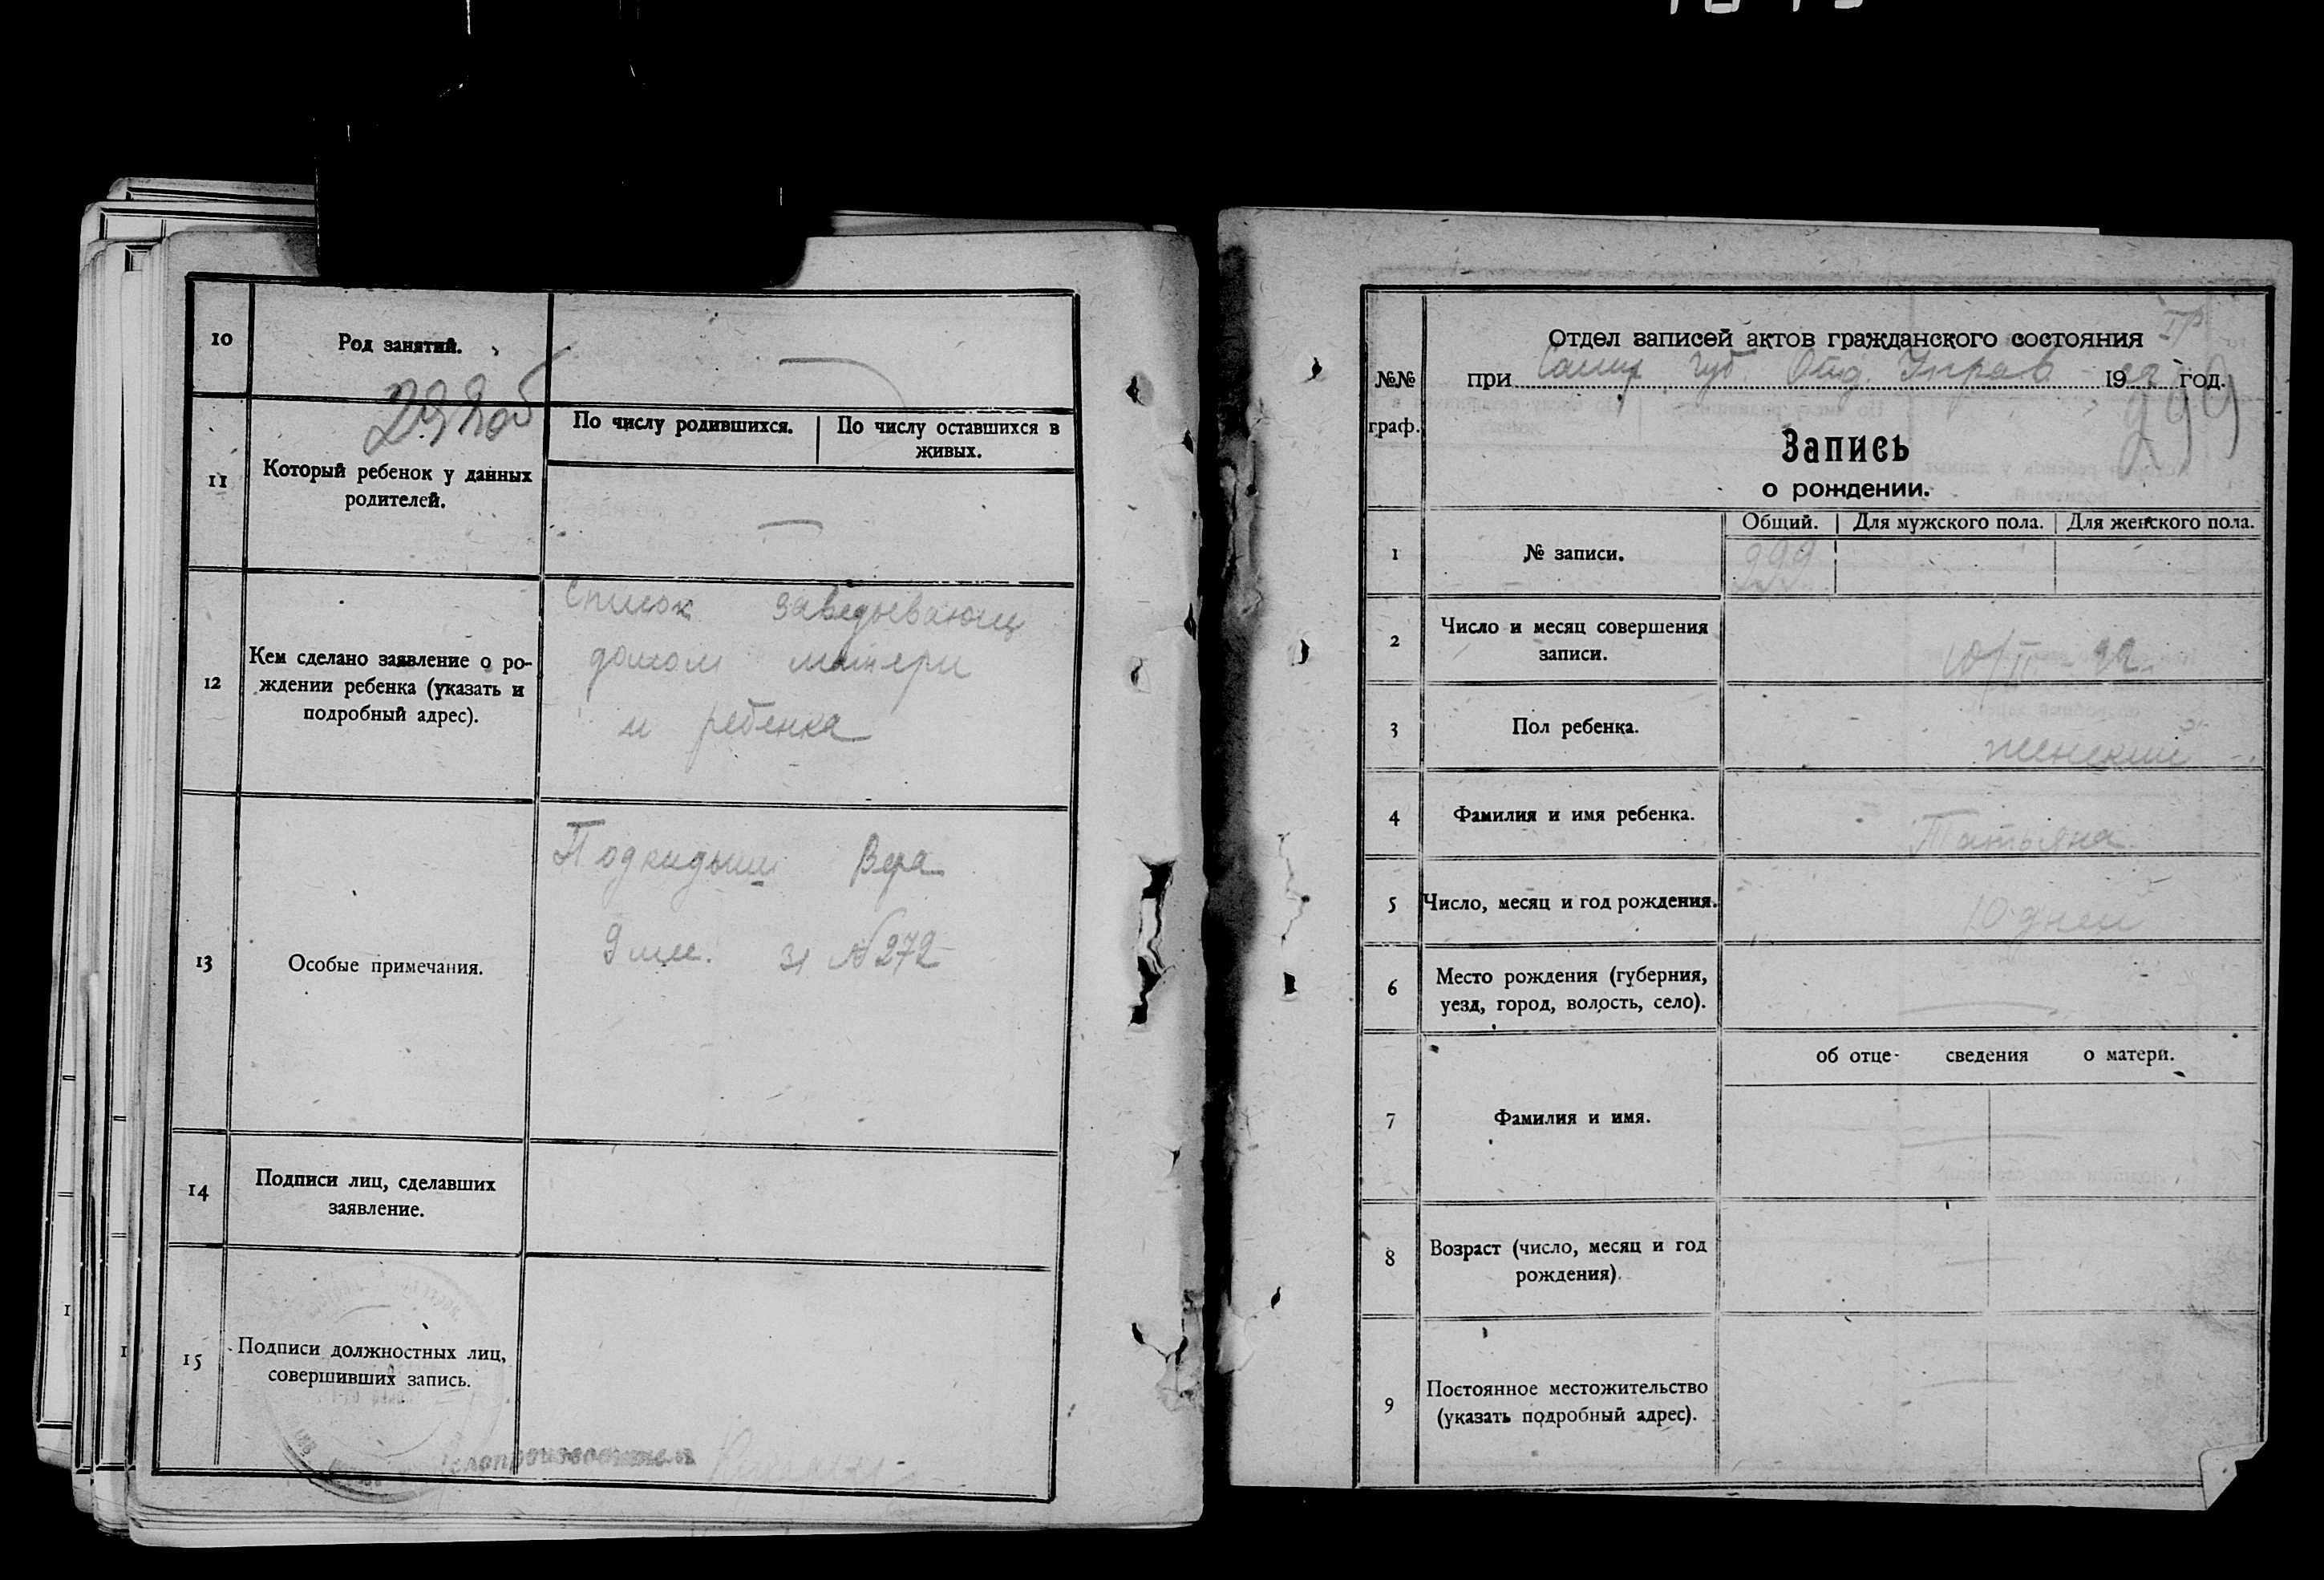 10
Род занятий.
11
Который ребенок у данных
родителей.
По числу родившихся.
По числу оставшихся в
живых.
12
Кем сделано заявление о ро-
ждении ребенка (указать и
подробный адрес).
Список заведывающ
домом матери
и ребенка
13
Особые примечания.
Подкидыш Вера
9 мес. № 272
14
Подписи лиц, сделавших
заявление.
15
Подписи должностных лиц,
совершивших запись.
Делопроизводитель
№№
граф.
Отдел записей актов гражданского состояния
при Самар Губ. Отд. Управ 1922 год.
299
Запись
о рождении.
1
№ записи.
Общий.
Для мужского пола.
Для женского пола.
299
2
Число и месяц совершения
записи.
10/II-22
3
Пол ребенка.
женский
4
Фамилия и имя ребенка.
Татьяна
5
Число, месяц и год рождения.
10 дней
6
Место рождения (губерния,
уезд, город, волость, село).
7
Фамилия и имя.
об отце- сведения о матери.
8
Возраст (число, месяц и год
рождения).
9
Постоянное местожительство
(указать подробный адрес).